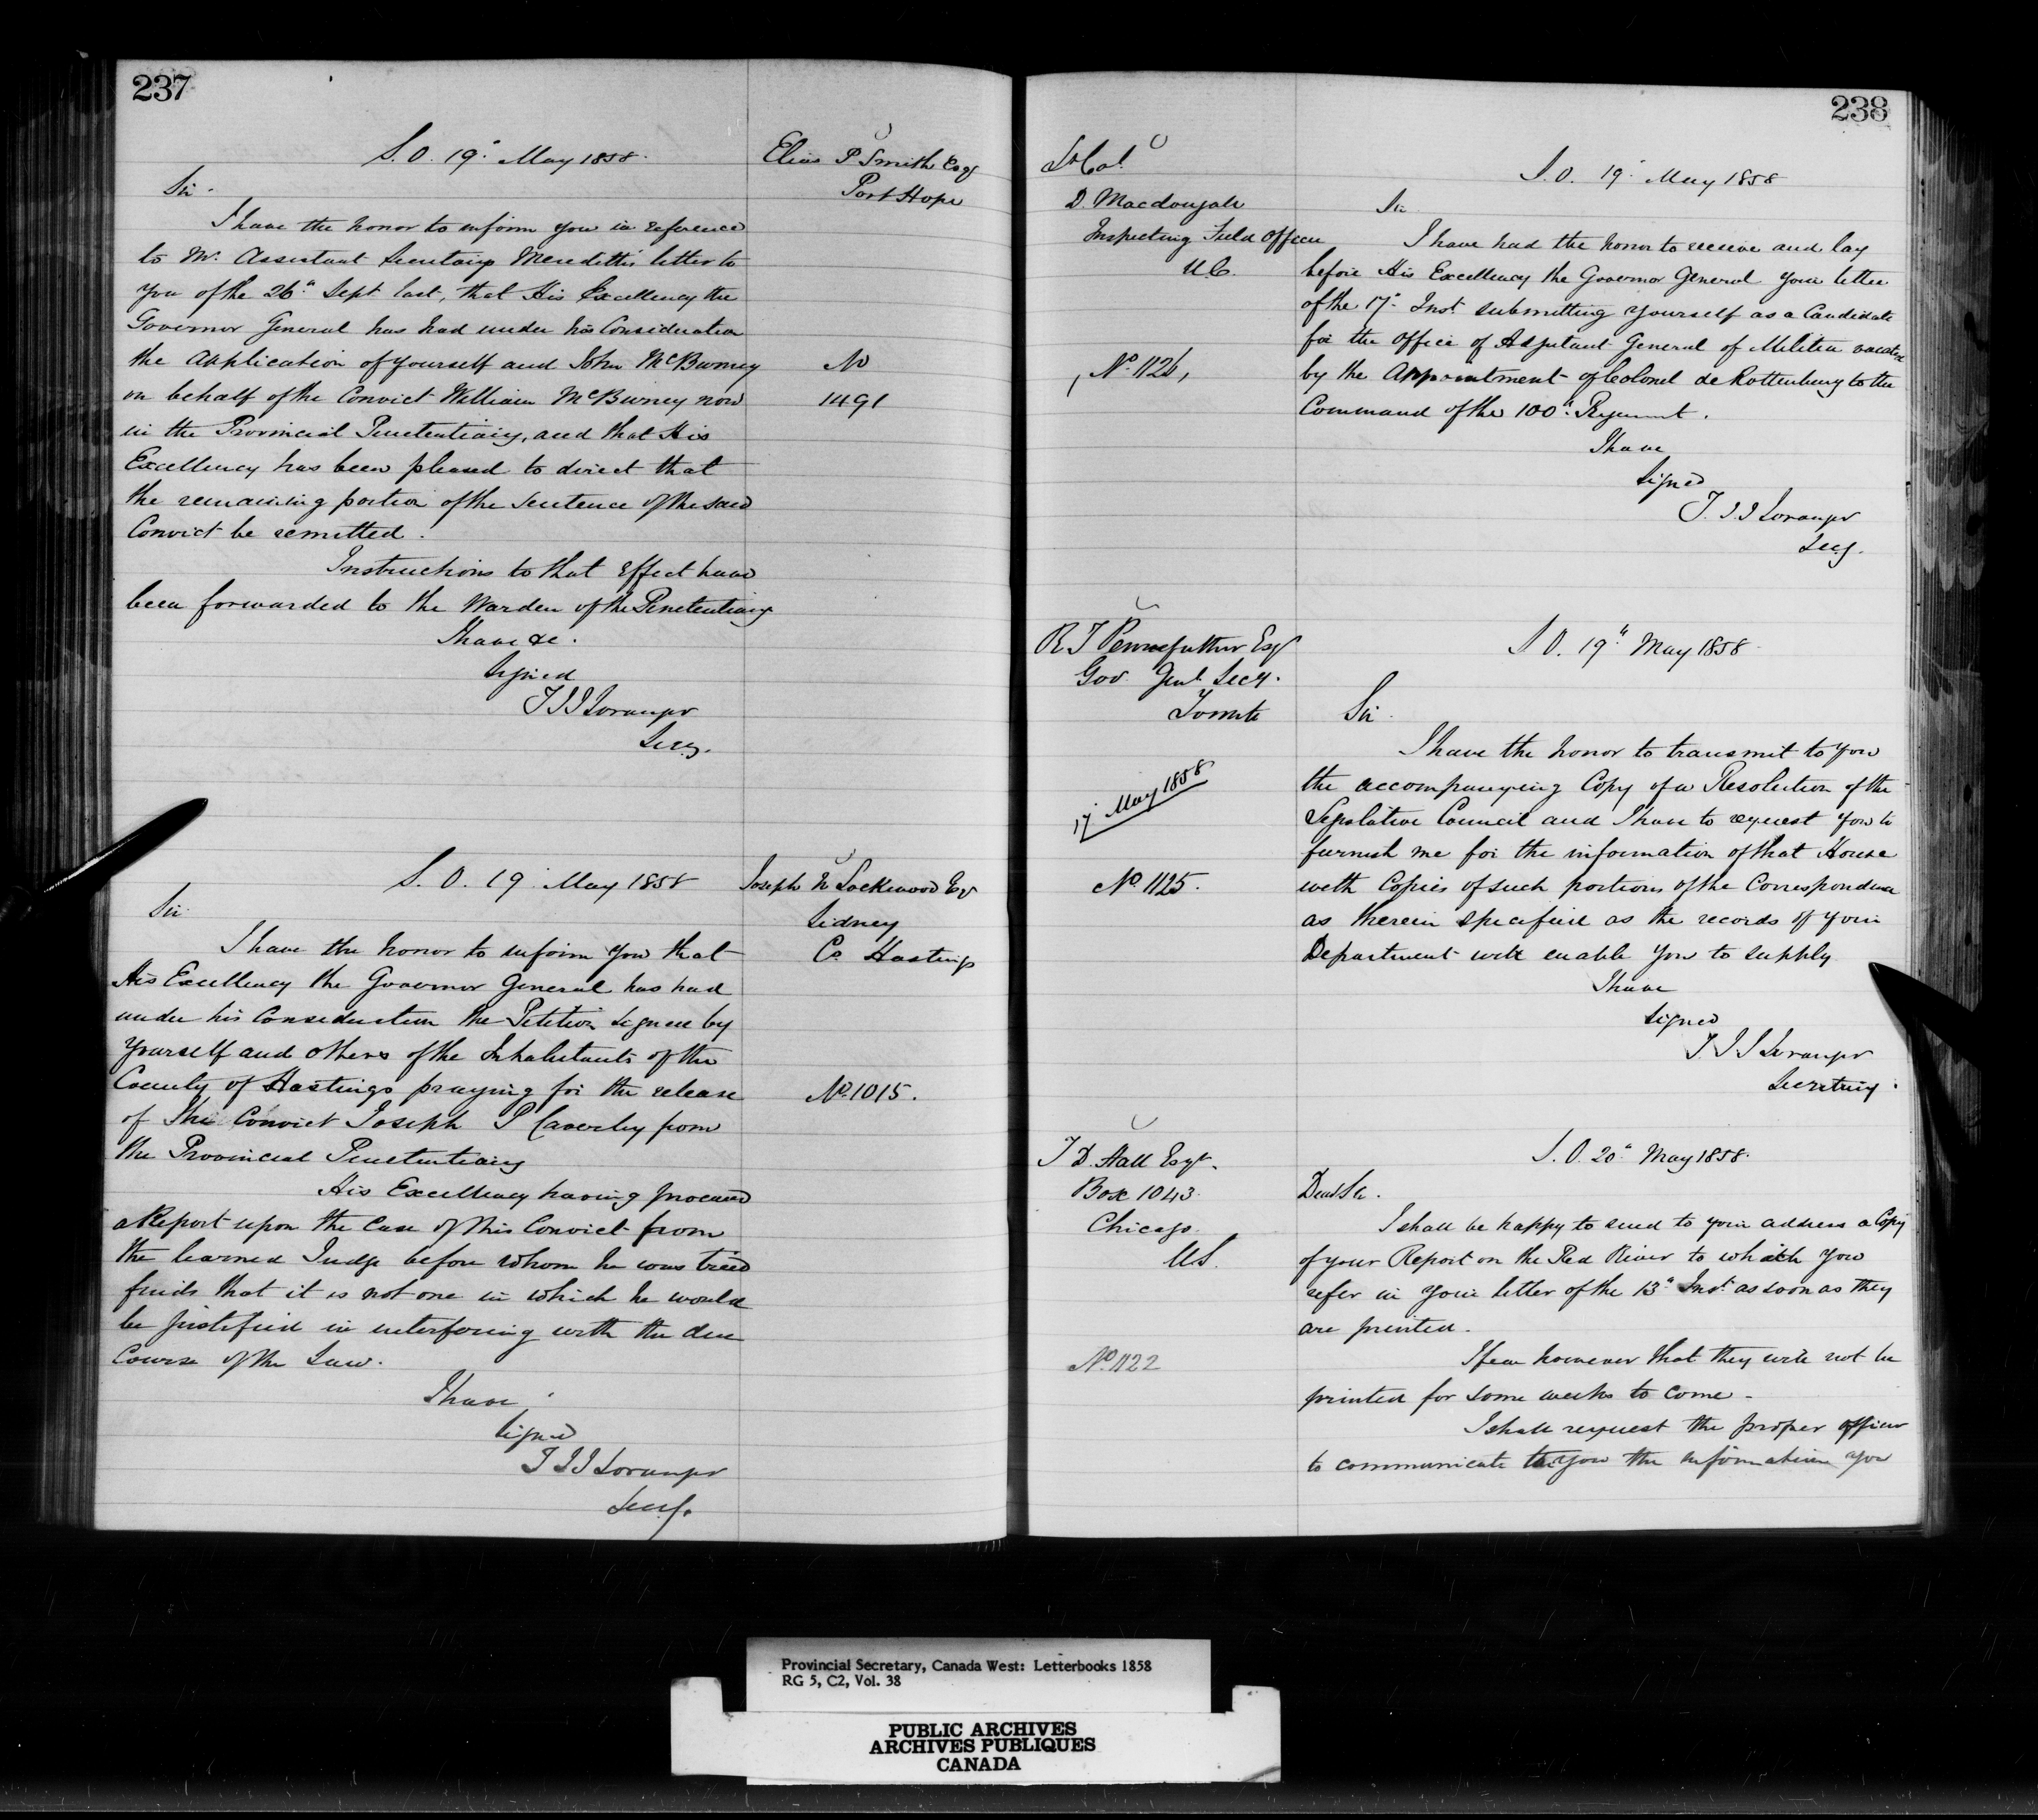 237
S. O. 19th May 1858.
Elias P Smith Esq
Port Hope
Sir.
I have the honor to inform you in reference
to Mr. Assistant Secretary Meredith's letter to
you of the 26th Sept. last, that His Excellency the
Governor General has had under his Consideration
the Application of yourself and John McBurney
on behalf of the Convict William McBurney now
in the Provincial Penetentiary, and that His
Excellency has been pleased to direct that
the remaining portion of the Sentence of the said
Convict be remitted.
No
1491
Instructions to that effect have
been forwarded to the Warden of the Penetentiary
I have &c.
Signed
T J J Loranger
Secy.
S. O. 19 May 1858
Joseph N Lockwood Esqr
Sidney
Co Hastings
Sir
I have the honor to inform you that
His Excellency the Governor General has had
under his Consideration the Petition signed by
Yourself and others of the Inhabitants of the
County of Hastings praying for the release
of The Convict Joseph P Caverley from
the Provincial Penetentiary
No. 1015.
His Excellency having procured
a Report upon the Case of this Convict from
the learned Judge before whom he was tried
finds that it is not one in which he would
be justified in interfering with the due
Course of the Law.
I have
Signed
T J J Loranger
Secy.
238
Lt Col.
D. Macdougall
Inspecting Field Officer
U C.
S. O. 19th May 1858
Sir
I have had the honor to receive and lay
before His Excellency the Governor General your letter
of the 17th Inst. submitting yourself as a Candidate
for the office of Adjutant General of Militia vacated
by the Appointment of Colonel de Rottenburg to the
Command of the 100th Regiment.
No. 1126,
I have
Signed
T. J. J Loranger
Secy.
R T Pennefather Esqr
Gov. Genl. Secy.
Toronto
S O. 19th May 1858
Sir.
I have the honor to transmit to you
the accompanying Copy of a Resolution of the
Legislative Council and I have to request you to
furnish me for the information of that House
with Copies of such portions of the Correspondence
as therein specified as the records of your
Department will enable you to supply
17 May 1858
No. 1125.
I have
Signed
T J J Loranger
Secretary.
T D. Hall Esqr.
Box 1043.
Chicago.
U S.
S. O. 20th May 1858.
Dear Sir.
I shall be happy to send to your address a Copy
of your Report on the Red River to which you
refer in your letter of the 13th Inst. as soon as they
are printed.
No. 1122
I fear however that they will not be
printed for some weeks to come -
I shall request the proper officer
to communicate to you the information you
Provincial Secretary, Canada West: Letterbooks 1858
RG 5, C2, Vol. 38
PUBLIC ARCHIVES
ARCHIVES PUBLIQUES
CANADA